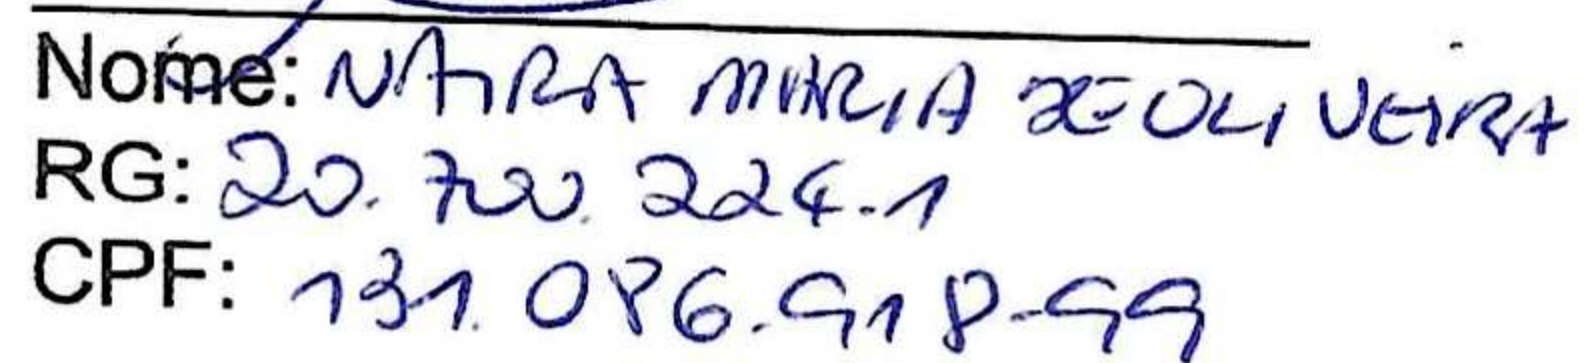 Nome: NAIRA MARIA DE OLIVEIRA
RG: 20.700.224-1
CPF: 131.086.918-99